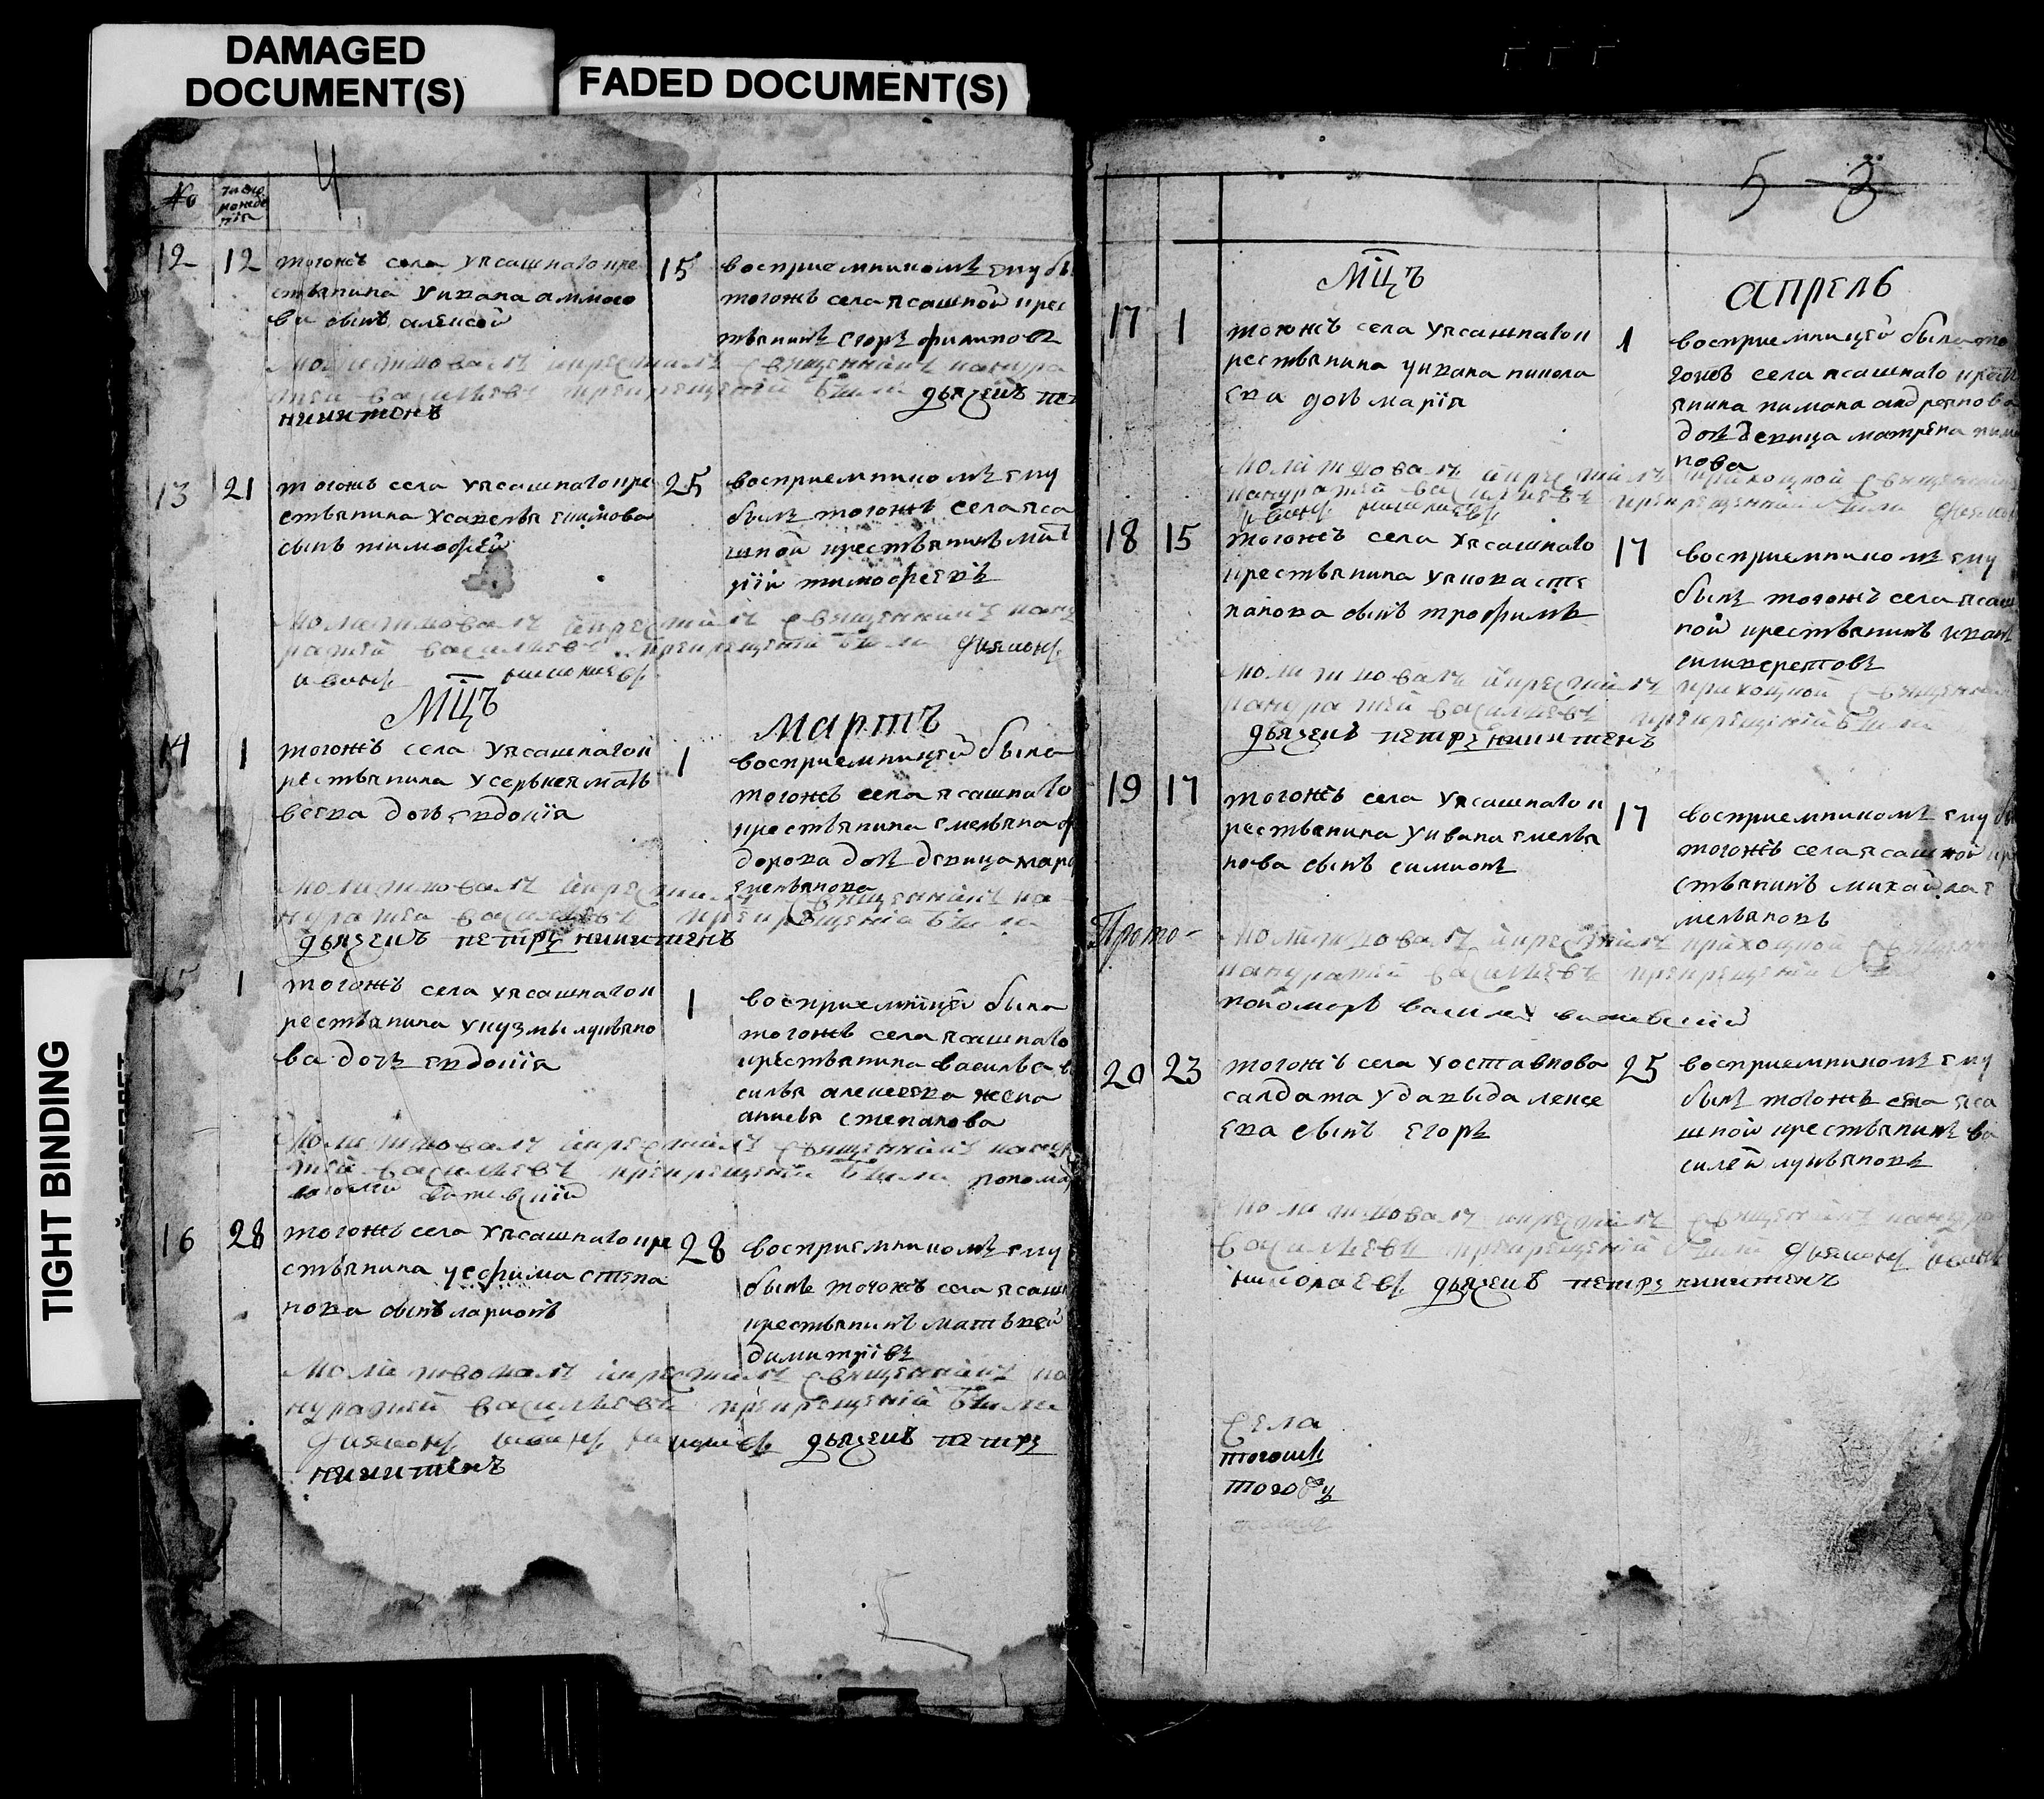 DAMAGED
DOCUMENT(S)
FADED DOCUMENT(S)
TIGHT BINDING
4
№
число
рожде
нія
12 12 тогожъ села уясашнаго кре
стьянина ивана
ва сынъ алексей
15 восприемникомъ ему бы
тогожъ села ясашной крес
тьянинъ егоръ филиповъ
молитвовалъ икрестилъ священникъ кондра
тей васильевъ прикрещеніи были дьячекъ пе
никитинъ
13 21 тогожъ села уясашнаго кре
стьянина усавелья екимова
сынъ тимофей
25 восприемникомъ ему
былъ тогожъ села яса
шной крестьянинъ
тимофеевъ
молитвовалъ икрестилъ священникъ конд
ратей васильевъ прикрещеніи были диаконъ
иванъ николаевъ
мцъ мартъ
14 1 тогожъ села уясашнаго к
рестьянина усергея мать
веева дочь евдокія
1 восприемницей была
тогожъ села ясашнаго
крестьянина емельяна ф
дорова дочь девица мар
емельянова
молитвовалъ икрестилъ священникъ ко
ндратей васильевъ прикрещеніи были
дьячекъ петръ никитинъ
15 1 тогожъ села уясашнаго к
рестьянина укузмы лукьяно
ва дочь евдокія
1 восприемницей была
тогожъ села ясашнаго
крестьянина василья ва
силья алексеева жена
степанова
молитвовалъ икрестилъ священникъ кондра
тей васильевъ прикрещеніи были понома
василей
16 28 тогожъ села уясашнаго кре
стьянина уефима степа
нова сынъ ларионъ
28 восприемникомъ ему
былъ тогожъ села ясашн
крестьянинъ матьвей
димитріевъ
молитвовалъ икрестилъ священникъ ко
ндратей васильевъ прикрещеніи были
диаконъ иванъ николаевъ дьячекъ петръ
никитинъ
5 3
мцъ апрель
17 1 тогожъ села уясашнаго к
рестьянина уивана никола
ева дочь марія
1 восприемницей была то
гожъ села ясашнаго крест
янина пимана андреянова
дочь девица матрена пима
нова
молитвовалъ икрестилъ приходской священни
кондратей васильевъ прикрещеніи были диакон
иванъ николаевъ
18 15 тогожъ села уясашнаго
крестьянина уякова сте
панова сынъ трофимъ
17 восприемникомъ ему
былъ тогожъ села ясаш
ной крестьянинъ иванъ
силиверстовъ
молитвовалъ икрестилъ приходской священни
кондратей васильевъ прикрещеніи были
дьячекъ петръ никитинъ
19 17 тогожъ села уясашнаго к
рестьянина уивана емелья
нова сынъ симионъ
17 восприемникомъ ему бы
тогожъ села ясашной кре
стьянинъ михайла е
мельяновъ
Прото-
молитвовалъ икрестилъ приходской священ
кондратей васильевъ прикрещеніи были
пономарь василей
20 23 тогожъ села уоставнова
салдата удавыда лексе
ева сынъ егоръ
25 восприемникомъ ему
былъ тогожъ села яса
шной крестьянинъ ва
силей лукьяновъ
молитвовалъ икрестилъ священникъ кондра
васильевъ прикрещеніи были диаконъ иванъ
николаевъ дьячекъ петръ никитинъ
села
тогожъ